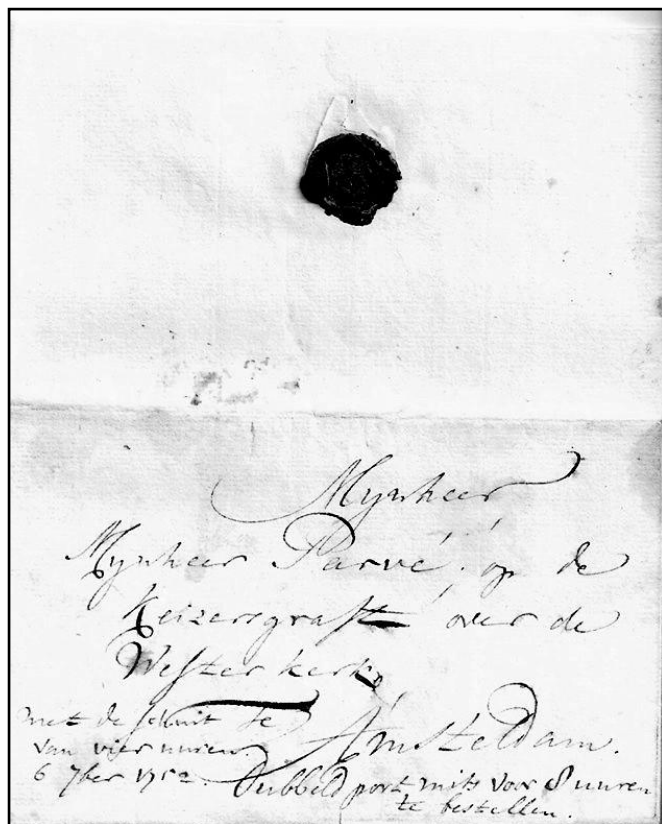 Mynheer
Mynheer Parvé, op de
Keizersgraft over de
Westerkerk,
Amsteldam.
met de schuit te
van vier uuren
6 7ber 1752.
Dubbeld port mits voor 8 uuren
te bestellen.